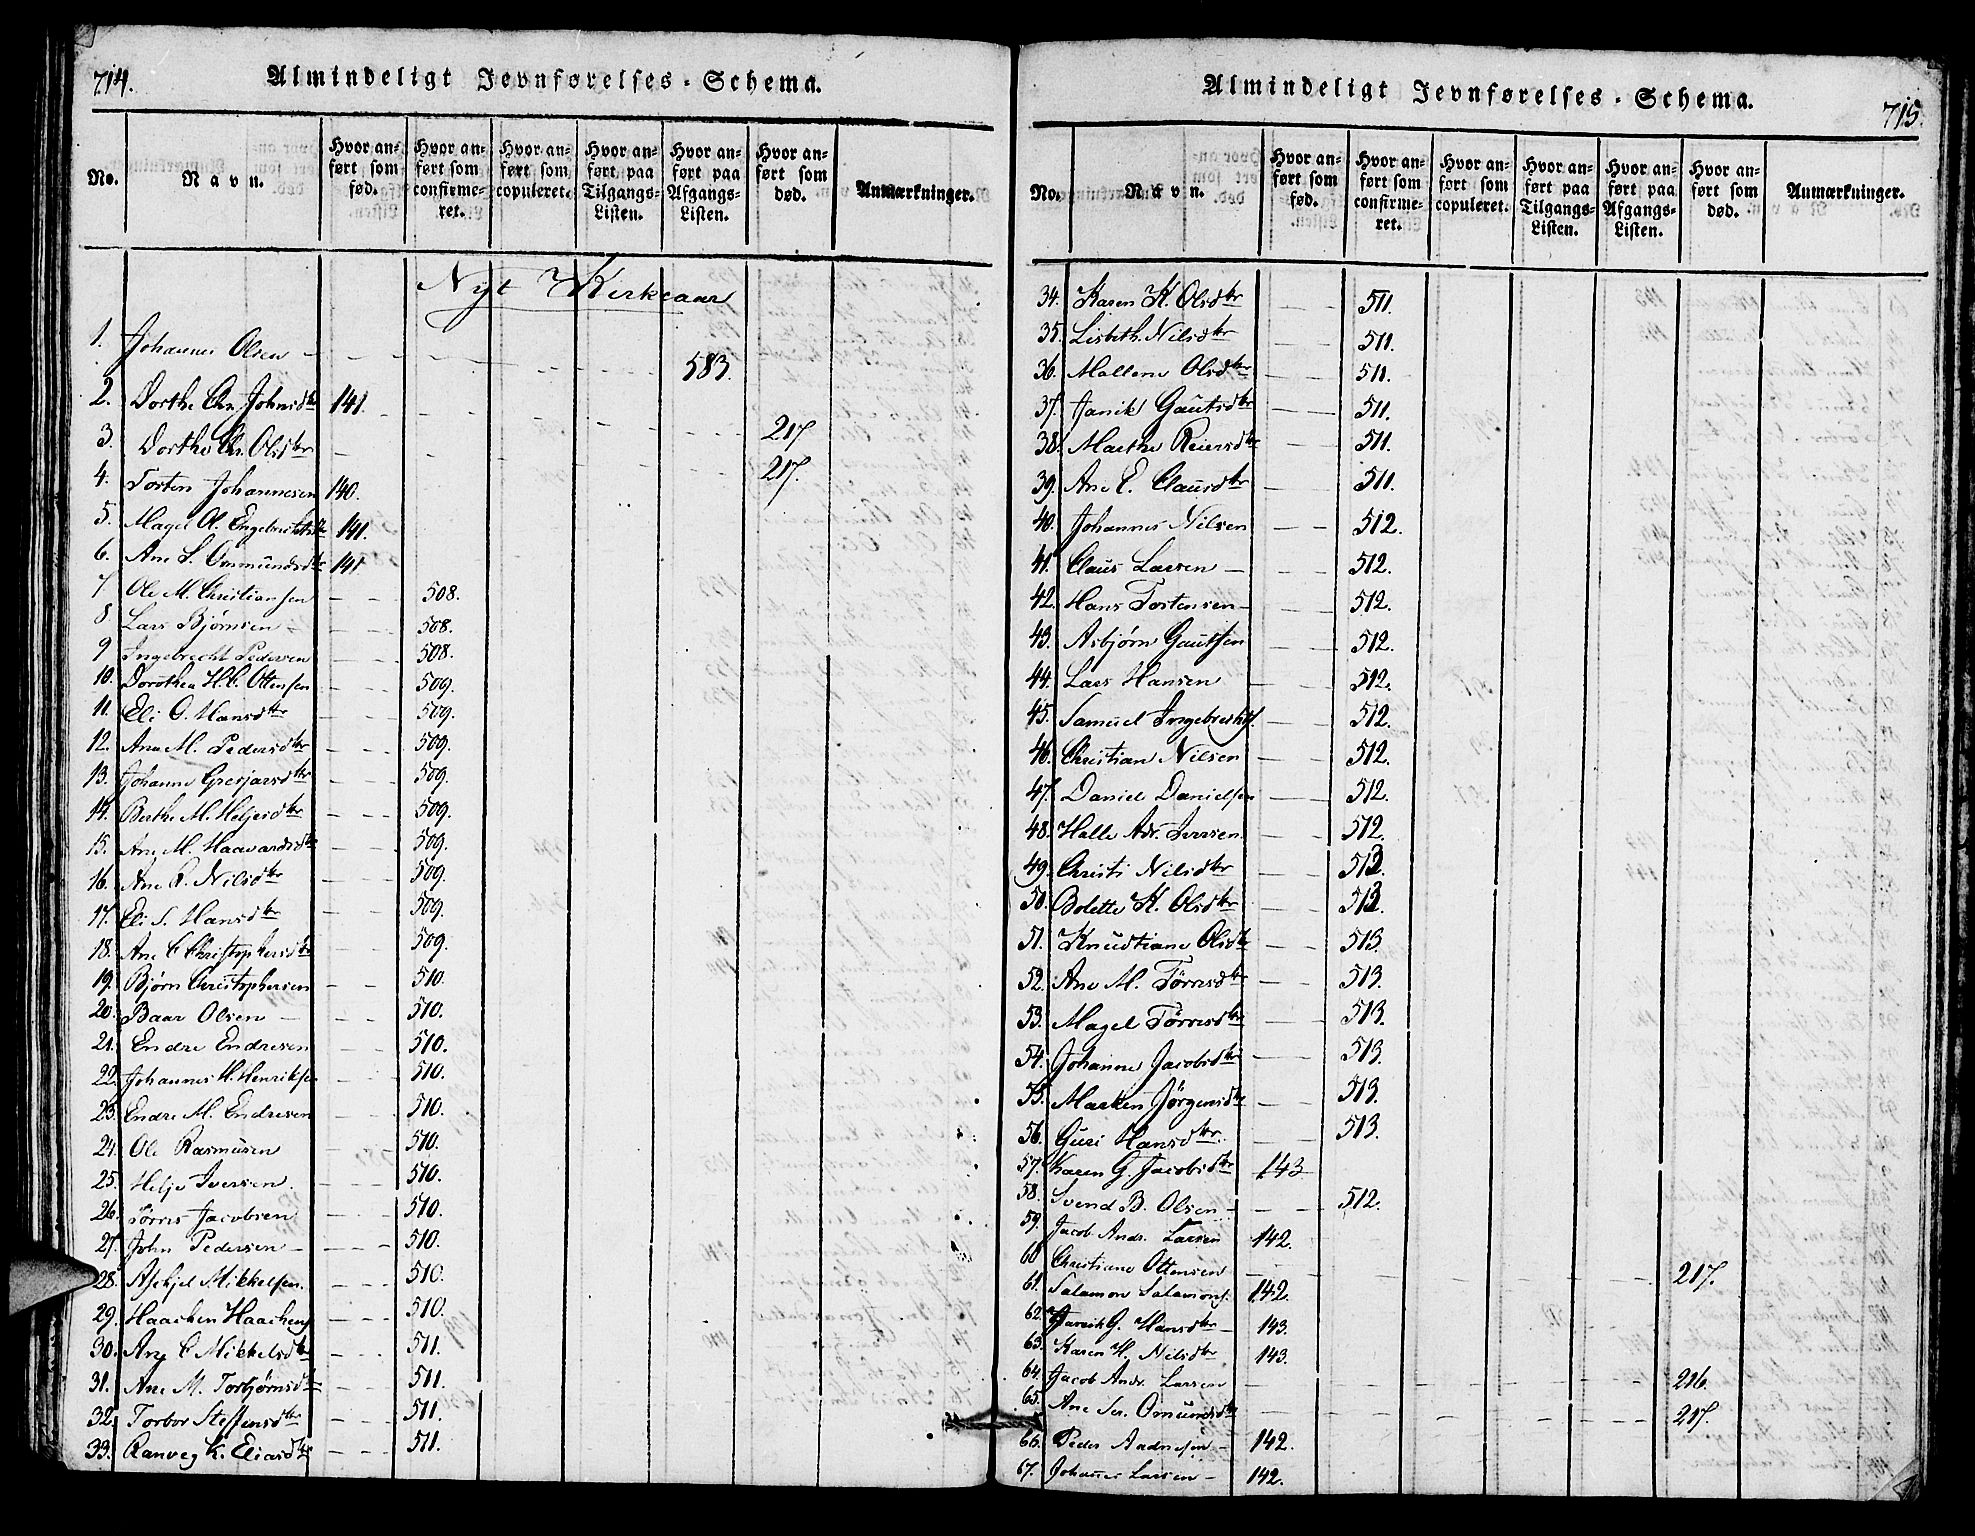 714.
Almindeligt Jevnførelses-Schema.
No.
Navn.
Hvor anført som fød.
Hvor anført som confirmeret.
Hvor anført som copuleret.
Hvor anført paa Tilgangs-Listen.
Hvor anført paa Afgangs-Listen.
Hvor anført som død.
Anmærkninger.
Nyt Kirkeaar
1. Johannes Olsen – 583.
2. Dorthe Chr. Johnsdtr 141. 217.
3. Dorthe Chr. Olsdtr 217.
4. Torsten Johannesen 140.
5. Magel O. Engebrechtsdtr 141.
6. Ane S. Ommundsdtr 141
7 Ole M. Christiansen 508.
8 Lars Bjørnsen – 508.
9 Ingebrecht Pedersen 508.
10. Dorothea H.C. Ottensen 509.
11. Eli O. Hansdtr 509.
12. Ane M. Pedersdtr 509.
13. Johanne Gresjarsdtr 509.
14. Berthe M. Heljesdtr 509.
15. Ane M. Haavardsdtr 509.
16. Ane R. Nilsdtr 509.
17. Eli S. Hansdtr 509.
18. Ane C Christophersdtr 509.
19. Bjørn Christophersen 510.
20. Baar Olsen – 510.
21. Endre Endresen 510.
22. Johannes H. Henriksen 510.
23. Endre M. Endresen 510.
24. Ole Rasmusen 510.
25. Helje Iversen. 510.
26. Tørres Jacobsen 510.
27. John Pedersen – 510.
28. Askjel Mikkelsen. 510.
29. Haachen Haachens 510.
30. Ane C Mikkelsdtr 511.
31. Ane M. Torbjørnsdtr 511.
32. Torbor Steffensdtr 511.
33. Ranveg K. Eliasdtr 511.
Almindeligt Jevnførelses-Schema.
715.
No.
Navn.
Hvor anført som fød.
Hvor anført som confirmeret.
Hvor anført som copuleret.
Hvor anført paa Tilgangs-Listen.
Hvor anført paa Afgangs-Listen.
Hvor anført som død.
Anmærkninger.
34. Karen K. Olsdtr 511.
35. Lisbeth Nilsdtr 511.
36. Mallene Olsdtr 511.
37. Janik Gautsdtr 511.
38. Marthe Reiersdtr 511.
39. Ane E. Clausdtr 511.
40. Johannes Nilsen 512.
41. Claus Larsen – 512.
42. Hans Tostensen – 512.
43. Asbjørn Gautsen 512.
44. Lars Hansen 512.
45. Samuel Ingebrechts. 512.
46. Christian Nilsen 512.
47. Daniel Danielsen 512.
48. Halle Adr. Iversen 512.
49. Christi Nilsdtr 513.
50. Bolette K. Olsdtr 513.
51. Knudtiane Olsdtr 513.
52. Ane M. Tørresdtr 513.
53. Magel Tørresdtr 513.
54. Johanne Jacobsdtr 513.
55. Marken Jørgensdtr 513.
56. Guri Hansdtr. 513.
57. Karen G. Jacobsdtr 143
58. Svend B. Olsen – 512.
59. Jacob Andr. Larsen 142.
60 Christiane Ottensen 217.
61. Salamon Salamons. 142.
62. Janik G. Hansdtr 143.
63. Karen H. Nilsdtr 143.
64. Jacob Andr. Larsen 216.
65. Ane Ser. Omundsdtr 217.
66. Peder Andresen – 142.
67. Johannes Larsen – 142.